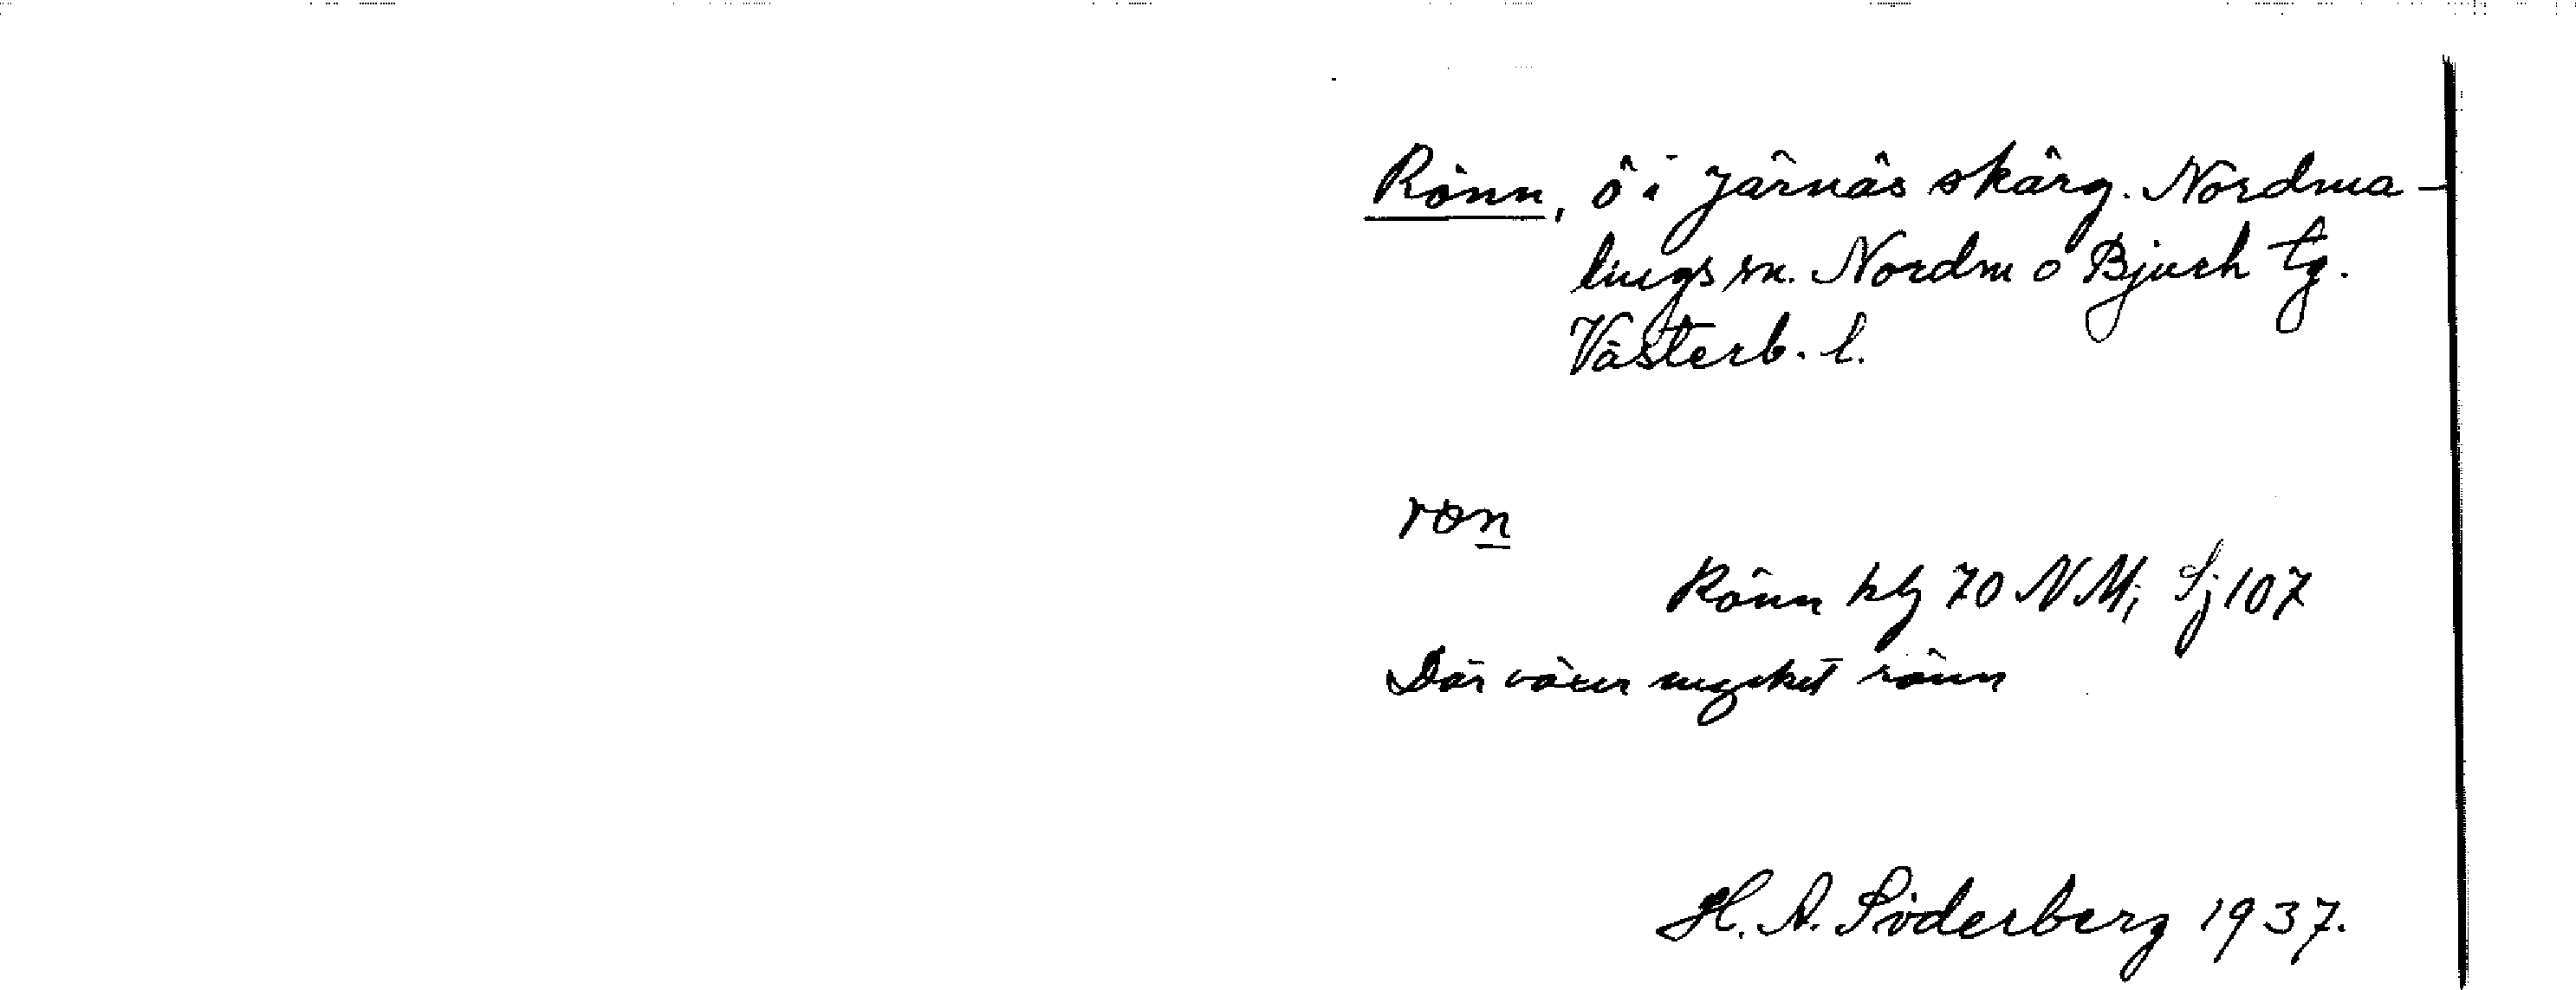 Rönn, ö i Järnäs skärg. Nordma-
lings sn. Nordm o Bjurh tg.
Västerb. l.
rön
Rönn kbl 70 NM; Sj 107
Där växer mycket rönn
H. A. Söderberg 1937.